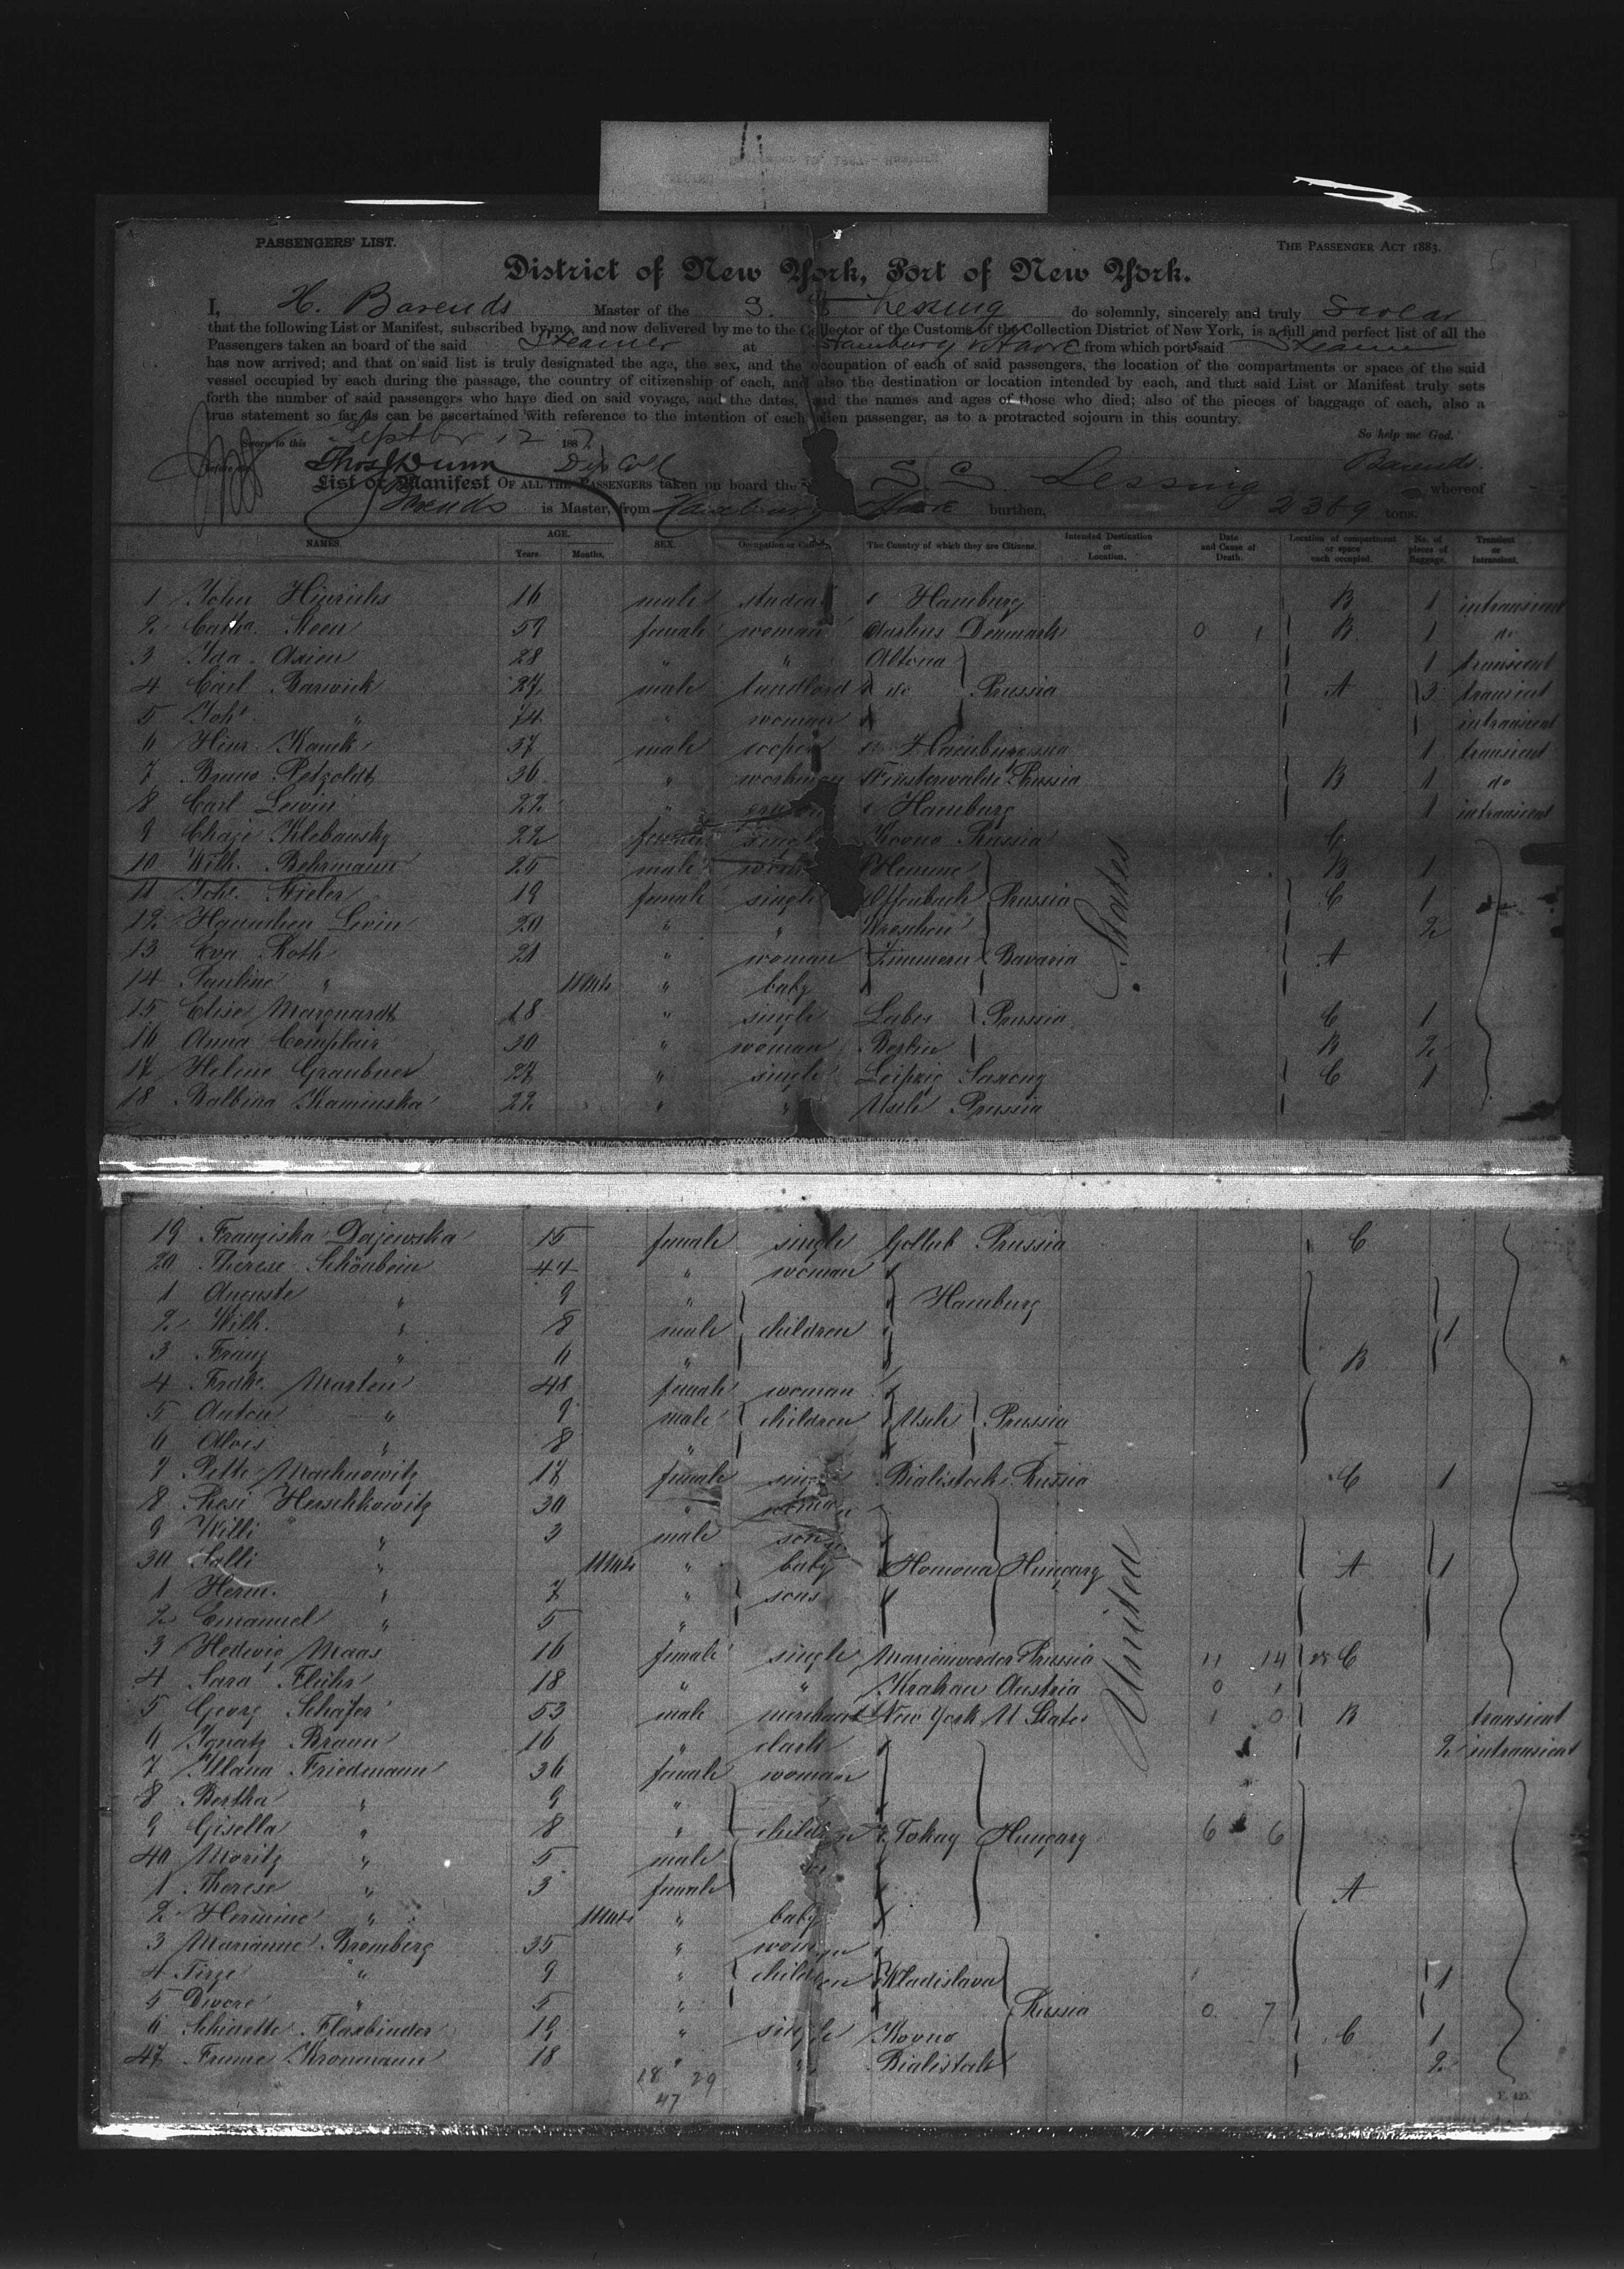 PASSENGERS' LIST.
THE PASSENGER ACT 1883.
District of New York, Port of New York.
I, H. Barends Master of the S. S. Lessing do solemnly, sincerely and truly Swear
that the following List or Manifest, subscribed by me, and now delivered by me to the Collector of the Customs of the Collection District of New York, is a full and perfect list of all the
Passengers taken an board of the said Steamer at Hamburg & Havre from which port said Steamer
has now arrived; and that on said list is truly designated the age, the sex, and the occupation of each of said passengers, the location of the compartments or space of the said
vessel occupied by each during the passage, the country of citizenship of each, and also the destination or location intended by each, and that said List or Manifest truly sets
forth the number of said passengers who have died on said voyage, and the dates, and the names and ages of those who died; also of the pieces of baggage of each, also a
true statement so far as can be ascertained with reference to the intention of each alien passenger, as to a protracted sojourn in this country.
Sworn to this Septbr 12 188
So help me God.
before me Thos Dunn Dep Coll
Barends.
List or Manifest OF ALL THE PASSENGERS taken on board the S. S. Lessing whereof
Barends is Master, from Hamburg Havre burthen, 2389 tons.
NAMES. AGE. Years. Months. SEX. Occupation or Calling. The Country of which they are Citizens. Intended Destination or Location. Date and Cause of Death. Location of compartment or space each occupied. No. of pieces of Baggage. Transient or Intransient.
1 John Hinrichs 16 male student Hamburg B 1 intransient
2 Catha. Steen 59 female woman Aarhus Denmark 0 1 B 1 do
3 Ida Axien 28 " " Altona 1 transient
4 Carl Barwick 27 male landlord do Prussia A 3 transient
5 Johe. " 24 " woman intransient
6 Hinr. Kauck 37 male cooper Hamburg 1 transient
7 Bruno Petzoldt 36 " workman Finsterwalde Prussia B 1 do
8 Carl Lewin 22 " Hamburg 1 intransient
9 Chaje Klebansky 22 female single Kovno Russia C
10 Wilh. Behrmann 25 male Hemme B 1
11 Johe. Fieler 19 female single Offenbach Prussia C 1
12 Hannchen Levin 20 " " Wreschen 2
13 Eva Roth 21 " woman Zimmern Bavaria A
14 Pauline " 11 Mts " baby
15 Elise Marquardt 18 " single Labes Prussia C 1
16 Anna Complair 30 " woman Berlin B 2
17 Helene Graubner 27 " single Leipzig Saxony C 1
18 Balbina Kaminska 22 " " Usch Prussia
19 Franziska Dajewska 15 female single Gollub Prussia C
20 Therese Schönbein 44 " woman
1 Auguste " 9 " Hamburg
2 Wilh. " 8 male children 1
3 Franz " 6 " B
4 Fredke. Marten 48 female woman
5 Anton " 9 male children Usch Prussia
6 Alois " 8 "
7 Pette Machnowitz 17 female single Bialistock Russia C 1
8 Resi Herschkowitz 30 " woman
9 Willi " 3 male son
30 Salli " 11 Mts " baby Homona Hungary A 1
1 Herm. " 7 " sons
2 Emanuel " 5 "
3 Hedwig Maas 16 female single Marienwerder Prussia 11 14 C
4 Sara Flühr 18 " " Krakau Austria 0 1
5 Georg Schäfer 53 male merchant New York U States 1 0 B transient
6 Ignatz Braun 16 " clerk 2 intransient
7 Hana Friedmann 36 female woman
8 Bertha " 9 "
9 Gisella " 8 " children Tokay Hungary 6 6
40 Moritz " 5 male
1 Therese " 3 female A
2 Hermine " 11 Mts " baby
3 Marianne Bromberg 35 " woman
4 Tirze " 9 " children Wladislava 1
5 Dwore " 5 " Russia 0 7
6 Scheinette Flaxbinder 19 " single Kovno C 1
47 Frume Kronmann 18 " " Bialistock 2
United States
18 29
47